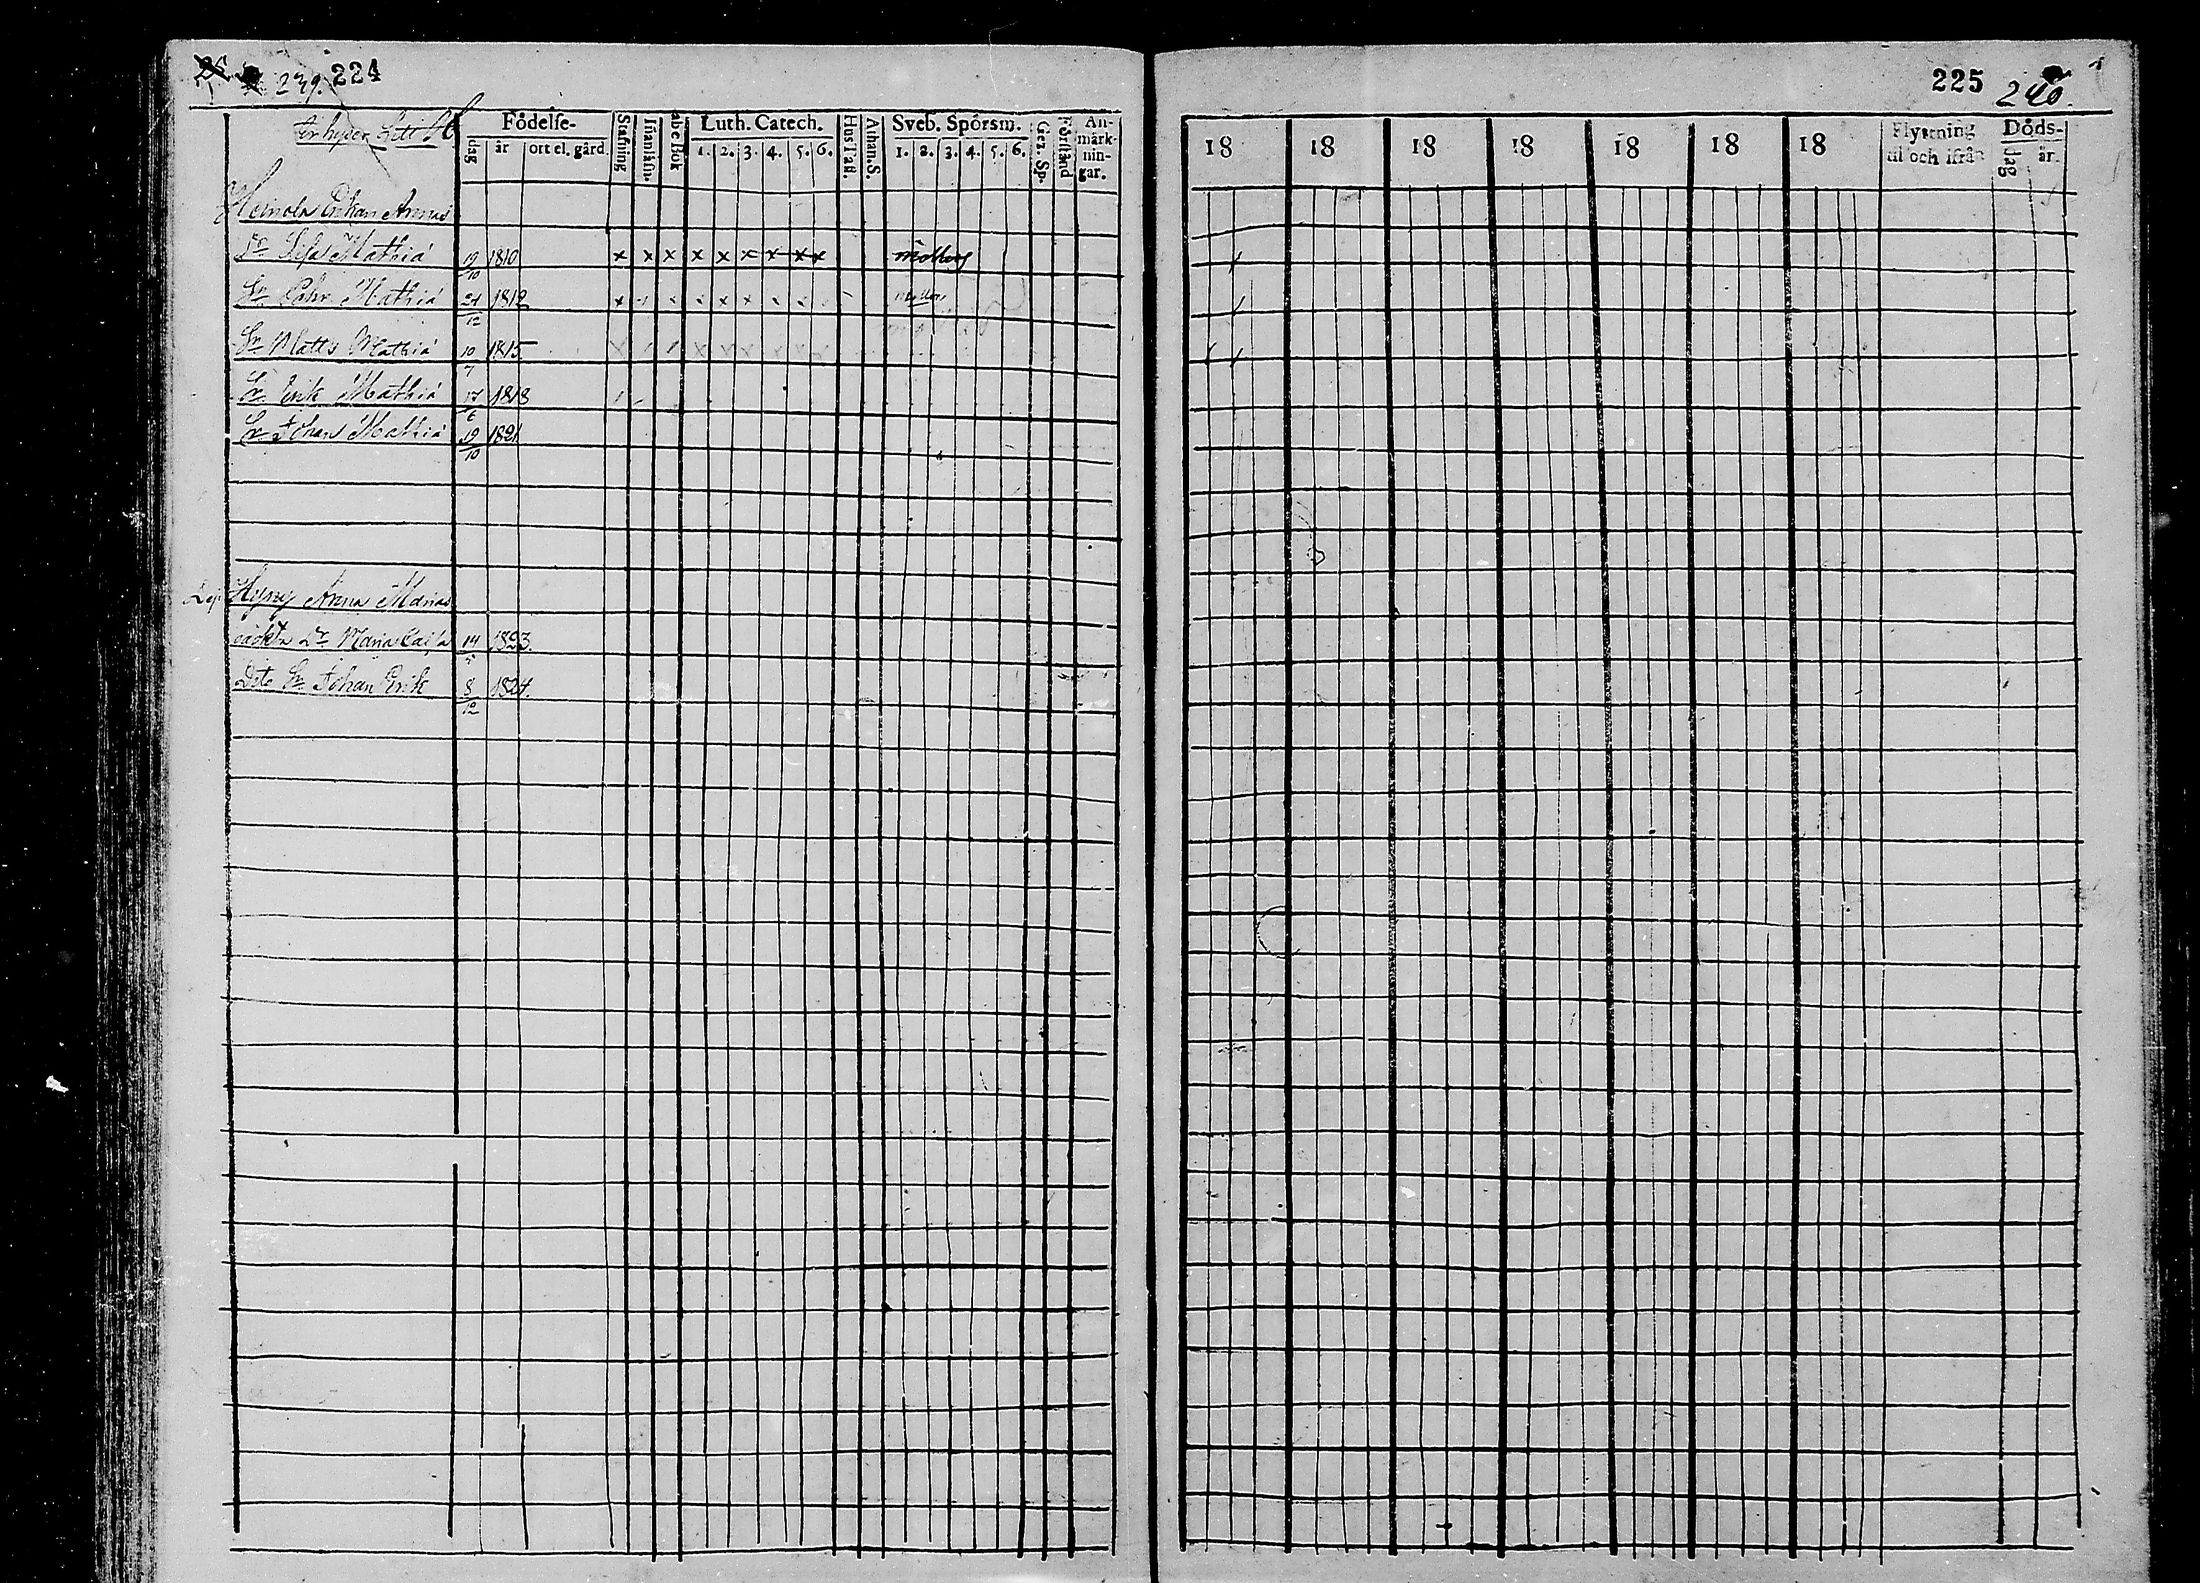 239. 224
Födelse-
dag år ort el. gård.
Stafning
Inanläsn.
abc Bok
Luth. Catech.
1. 2. 3. 4. 5. 6.
Hus Tafl.
Athan. S.
Sveb. Spörsm.
1. 2. 3. 4. 5. 6.
Gez. Sp.
Förstånd
An-
märk-
nin-
gar.
Heinola Enkan Annas
Dr Lisa Mathiä 19/10 1810 x x x x x x x x x
Sn Mathiä 24/12 1812
Sn Matts Mathiä 10/7 1815
Sn Erik Mathiä 17/6 1818
Sn Johan Mathiä 19/10 1821
Anna Marias
oäckta Dr Maria Cajsa 14/5 1823.
Dito Sn Johan Erik 8/12 1824.
225 240.
18 18 18 18 18 18 18
Flyttning
til och ifrån
Döds-
dag år.